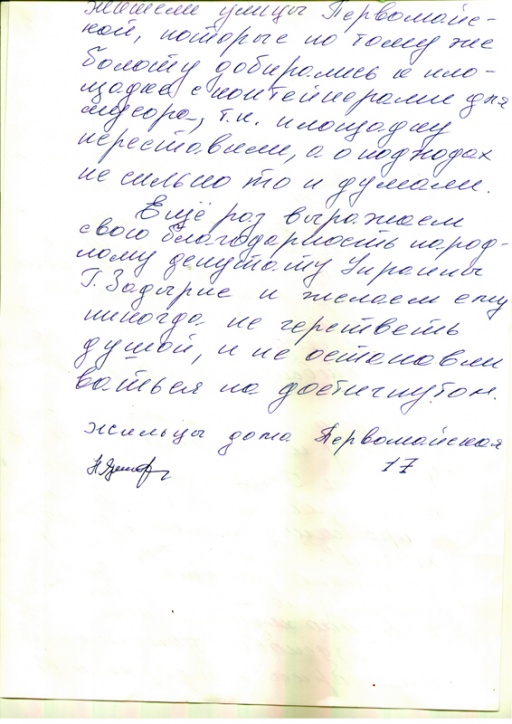 жители улицы Первомайс-
кой, которые по тому же
болоту добирались к пло-
щадке с контейнерами для
мусора, т.к. площадку
переставили, а о подходах
не сильно то и думали.
Ещё раз выражаем
свою благодарность народ-
ному депутату Украины
Г. Задырке и желаем ему
никогда не черстветь
душой, и не останавли
ваться на достигнутом.
жильцы дома Первомайская
17